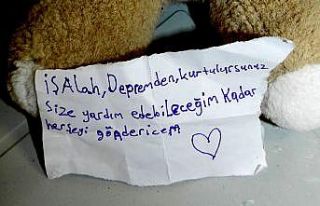 işAlah, Depremden, kurtulursunuz
Size yardım edebileceğim Kadar
herşeyi göndericem